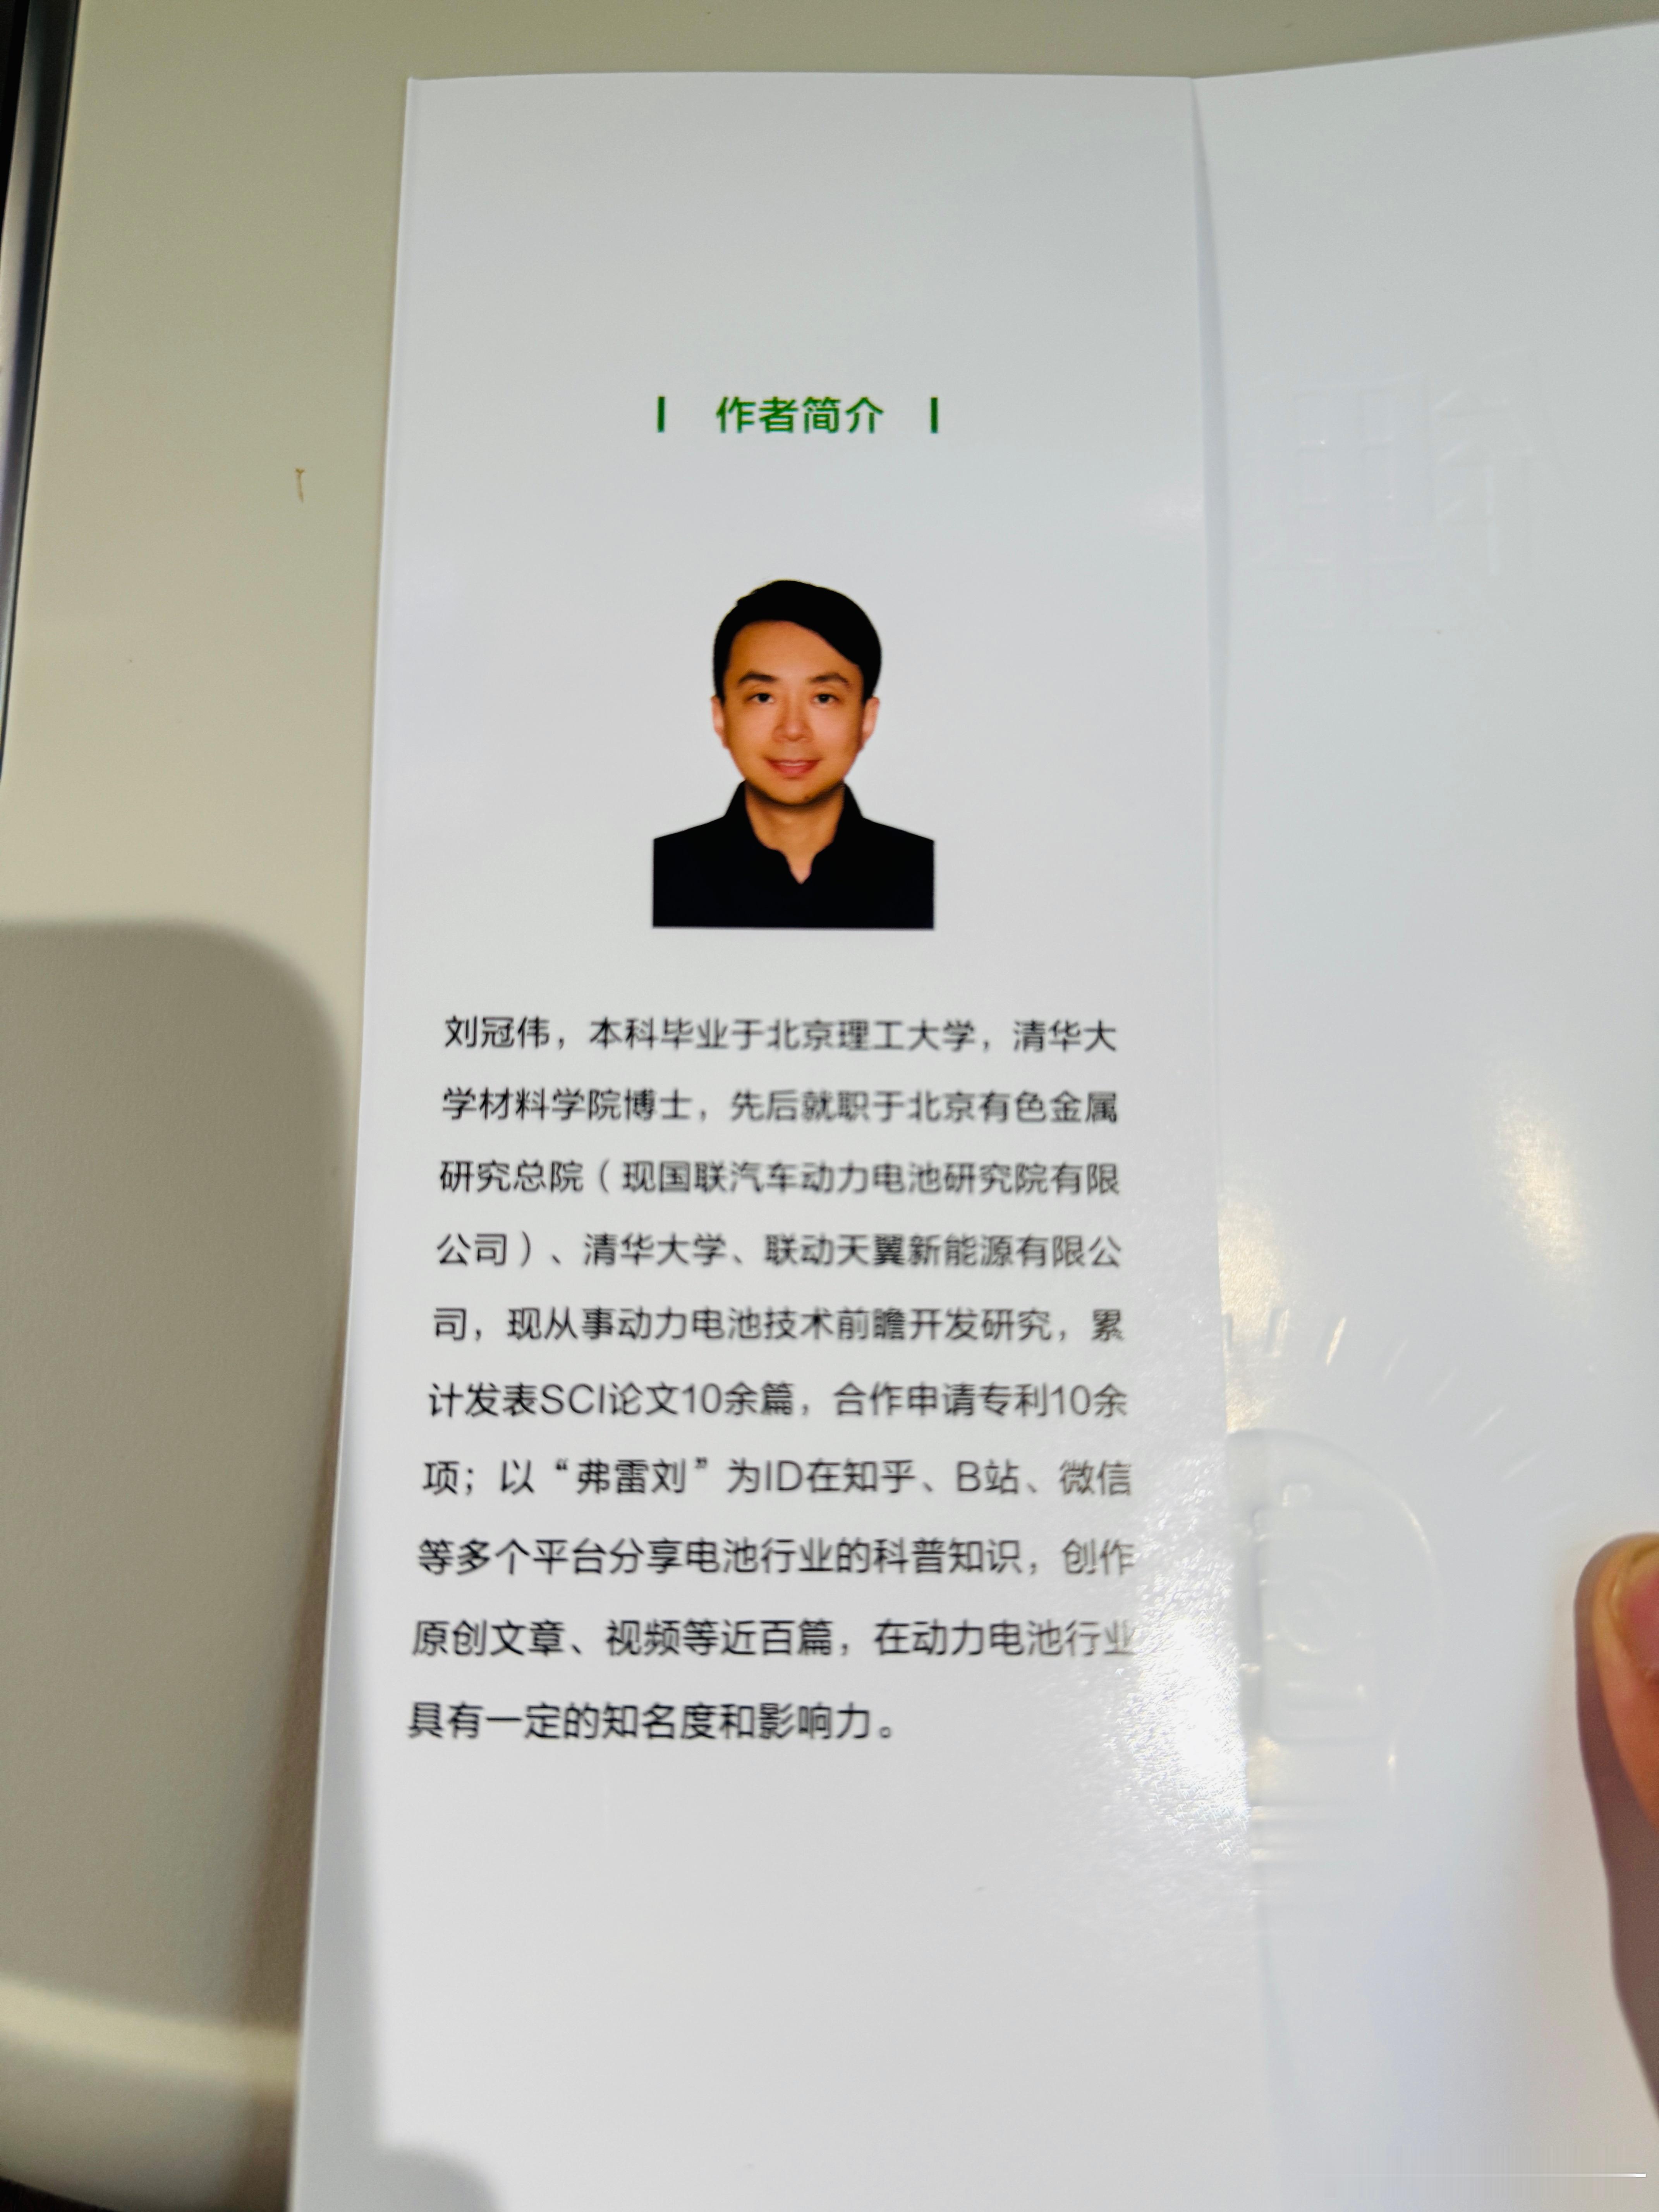 作者简介
刘冠伟，本科毕业于北京理工大学，清华大
学材料学院博士，先后就职于北京有色金属
研究总院（现国联汽车动力电池研究院有限
公司）、清华大学、联动天翼新能源有限公
司，现从事动力电池技术前瞻开发研究，累
计发表SCI论文10余篇，合作申请专利10余
项；以“弗雷刘”为ID在知乎、B站、微信
等多个平台分享电池行业的科普知识，创作
原创文章、视频等近百篇，在动力电池行业
具有一定的知名度和影响力。